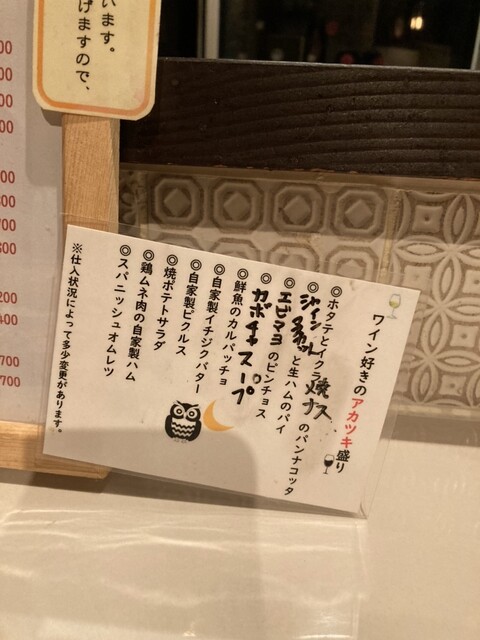 います。
げますので、
00
00
00
00
00
00
700
800
200
400
700
700
ワイン好きのアカツキ盛り
◎ホタテとイクラ焼ナスのパンナコッタ
◎シャインマスカットと生ハムのパイ
◎エビマヨのピンチョス
◎カボチャスープ
◎鮮魚のカルパッチョ
◎自家製イチジクバター
◎自家製ピクルス
◎焼ポテトサラダ
◎鶏ムネ肉の自家製ハム
◎スパニッシュオムレツ
※仕入状況によって多少変更があります。